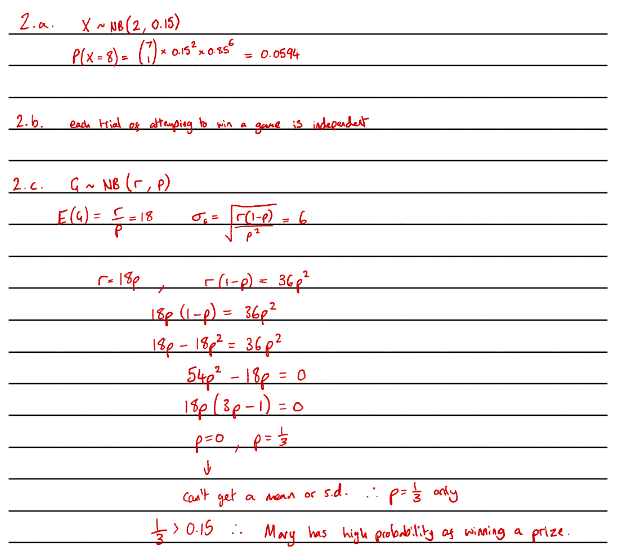 2.a. X ~ NB(2, 0.15)
P(X=8) = (7 1) × 0.15² × 0.85⁶ = 0.0594
2.b. each trial of attempting to win a game is independent
2.c. G ~ NB(r, p)
E(G) = r/p = 18 σ_G = √(r(1-p)/p²) = 6
r = 18p , r(1-p) = 36p²
18p(1-p) = 36p²
18p - 18p² = 36p²
54p² - 18p = 0
18p(3p-1) = 0
p=0 , p=1/3
↓
can't get a mean or s.d. ∴ p=1/3 only
1/3 > 0.15 ∴ Mary has high probability of winning a prize.